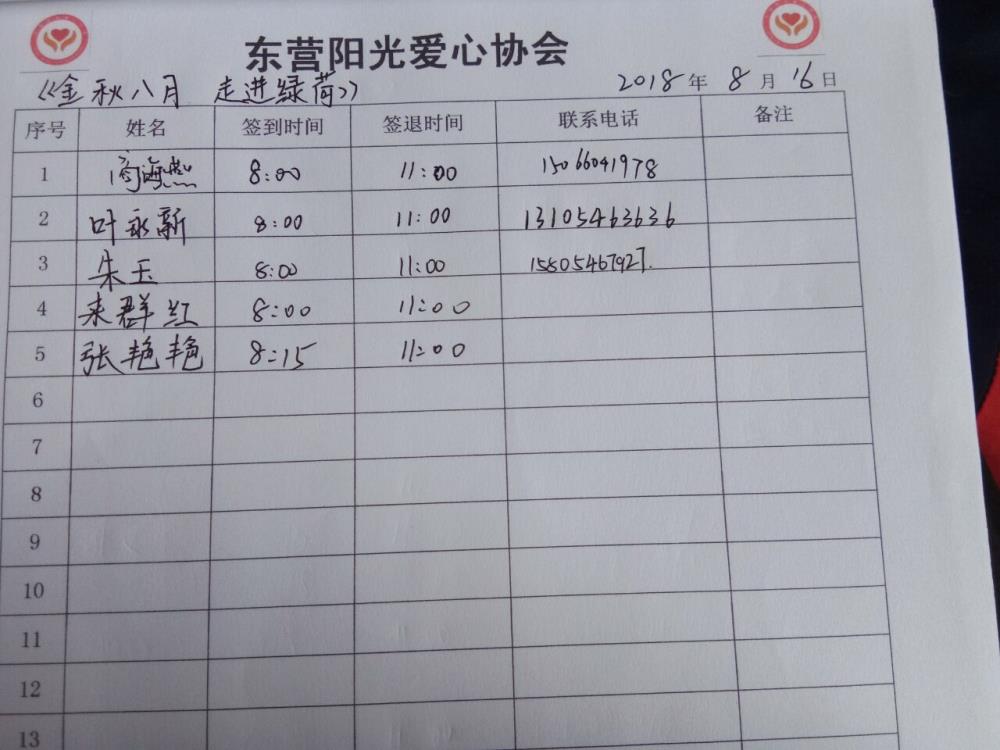 东营阳光爱心协会
《金秋八月 走进绿荷》 2018年8月16日
序号 姓名 签到时间 签退时间 联系电话 备注
1 商海 8:00 11:00 15066041978
2 叶永新 8:00 11:00 13105463636
3 朱玉 8:00 11:00 15805467927.
4 来群红 8:00 11:00
5 张艳艳 8:15 11:00
6
7
8
9
10
11
12
13